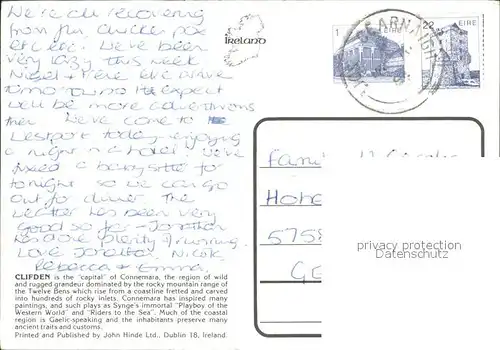 We're all recovering
from flu, chicken pox
etc etc. We've been
very lazy this week
Nigel + arrive
tomorrow so expect
we'll be more adventurous
then We've come to
Westport today enjoying
a night in a hotel! We've
fixed a babysitter for
tonight so we can go
out for dinner The
weather has been very
good so far - Jonathan
has done plenty of running.
Love Jonathan, Nicole
Rebecca + Emma.
CLIFDEN is the "capital" of Connemara, the region of wild
and rugged grandeur dominated by the rocky mountain range of
the Twelve Bens which rise from a coastline fretted and carved
into hundreds of rocky inlets. Connemara has inspired many
paintings, and such plays as Synge's immortal "Playboy of the
Western World" and "Riders to the Sea". Much of the coastal
region is Gaelic-speaking and the inhabitants preserve many
ancient traits and customs.
Printed and Published by John Hinde Ltd., Dublin 18, Ireland.
IRELAND
1 EIRE
22 EIRE
Fami
Hohe
575
Ge
privacy protection
Datenschutz